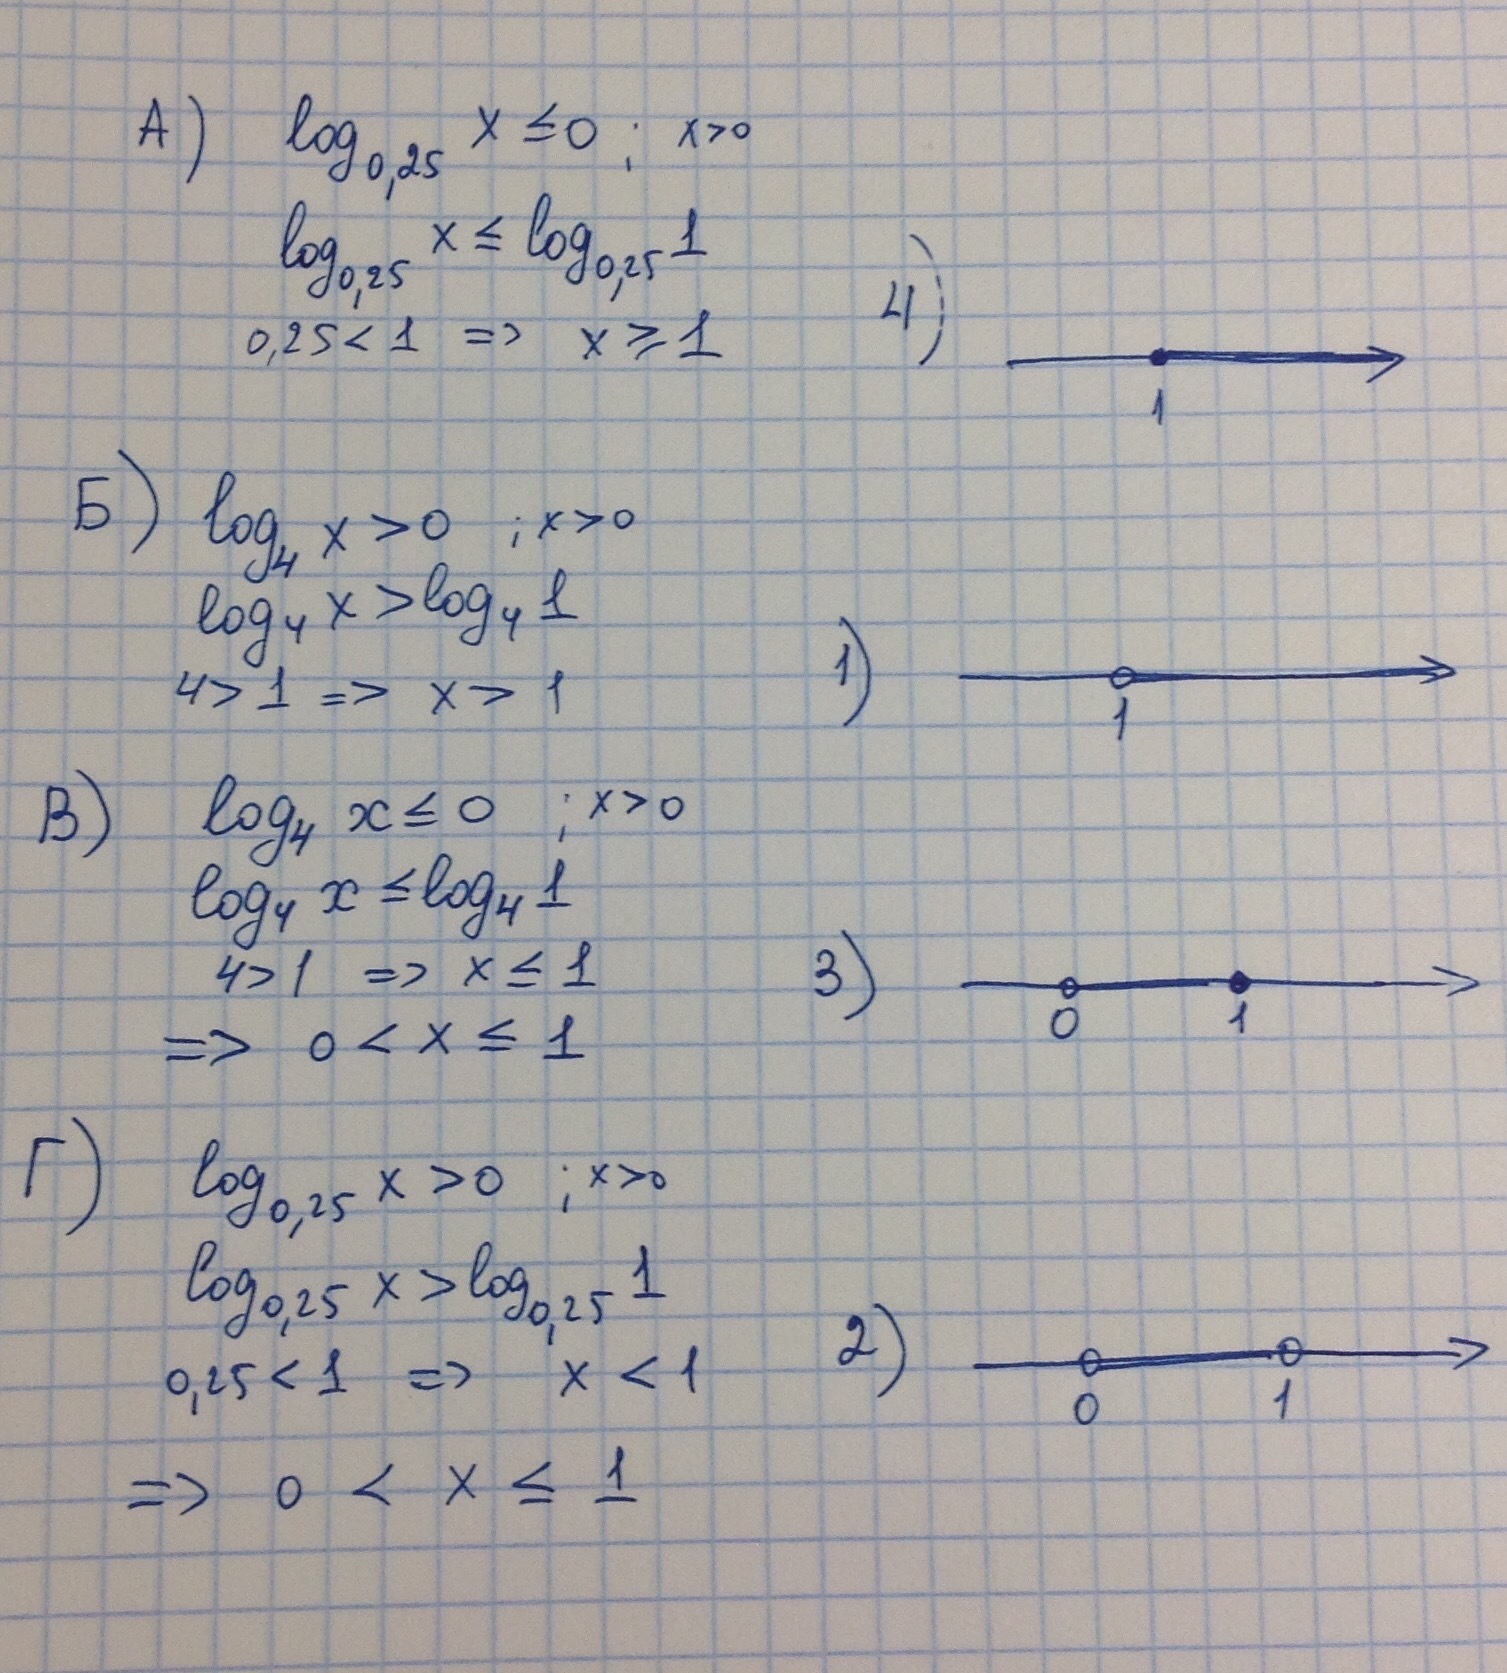 А) log₀,₂₅ x ≤ 0 ; x > 0
log₀,₂₅ x ≤ log₀,₂₅ 1
0,25 < 1 => x ≥ 1
4)
1
Б) log₄ x > 0 ; x > 0
log₄ x > log₄ 1
4 > 1 => x > 1
1)
1
В) log₄ x ≤ 0 ; x > 0
log₄ x ≤ log₄ 1
4 > 1 => x ≤ 1
=> 0 < x ≤ 1
3)
0 1
Г) log₀,₂₅ x > 0 ; x > 0
log₀,₂₅ x > log₀,₂₅ 1
0,25 < 1 => x < 1
=> 0 < x ≤ 1
2)
0 1